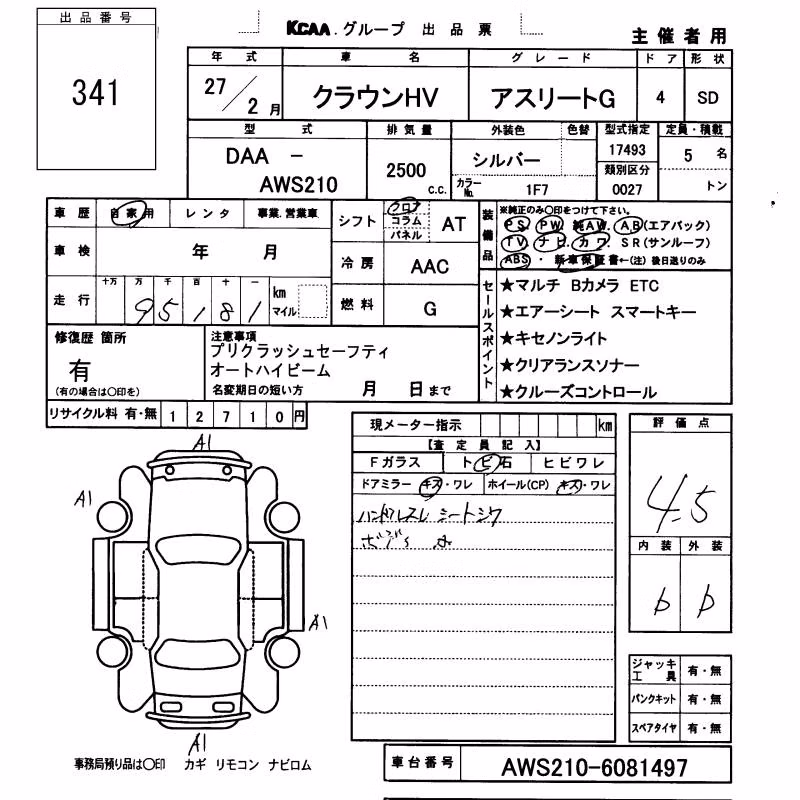 出品番号
341
KCAA.グループ 出品票
主催者用
年式 車名 グレード ドア 形状
27/2月 クラウンHV アスリートG 4 SD
型式 排気量 外装色 色替 型式指定 定員・積載
DAA - AWS210
2500 c.c.
シルバー
カラーNo. 1F7
17493
類別区分
0027
5 名
トン
車歴 自家用 レンタ 事業.営業車
車検 年 月
走行 十万 万 千 百 十 一
95181 km マイル
シフト フロア コラム パネル AT
冷房 AAC
燃料 G
装備品
※純正のみ○印をつけて下さい。
PS. PW. 純AW. AB(エアバック)
TV. ナビ. カワ. SR(サンルーフ)
ABS・新車保証書←(注) 後日送りのみ
セールスポイント
★マルチ Bカメラ ETC
★エアーシート スマートキー
★キセノンライト
★クリアランスソナー
★クルーズコントロール
修復歴 箇所
有
(有の場合は○印を)
注意事項
プリクラッシュセーフティ
オートハイビーム
名変期日の短い方 月 日まで
リサイクル料 有・無 12710円
現メーター指示 km
【査定員記入】
Fガラス トビ石 ヒビワレ
ドアミラー キズ・ワレ ホイール(CP) キズ・ワレ
ハンドルスレ シートシワ
評価点
4.5
内装 外装
b b
A1
A1
A1
A1
ジャッキ工具 有・無
パンクキット 有・無
スペアタイヤ 有・無
事務局預り品は○印 カギ リモコン ナビロム
車台番号 AWS210-6081497